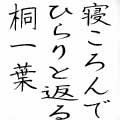 寝ころんで
ひらりと返る
桐一葉